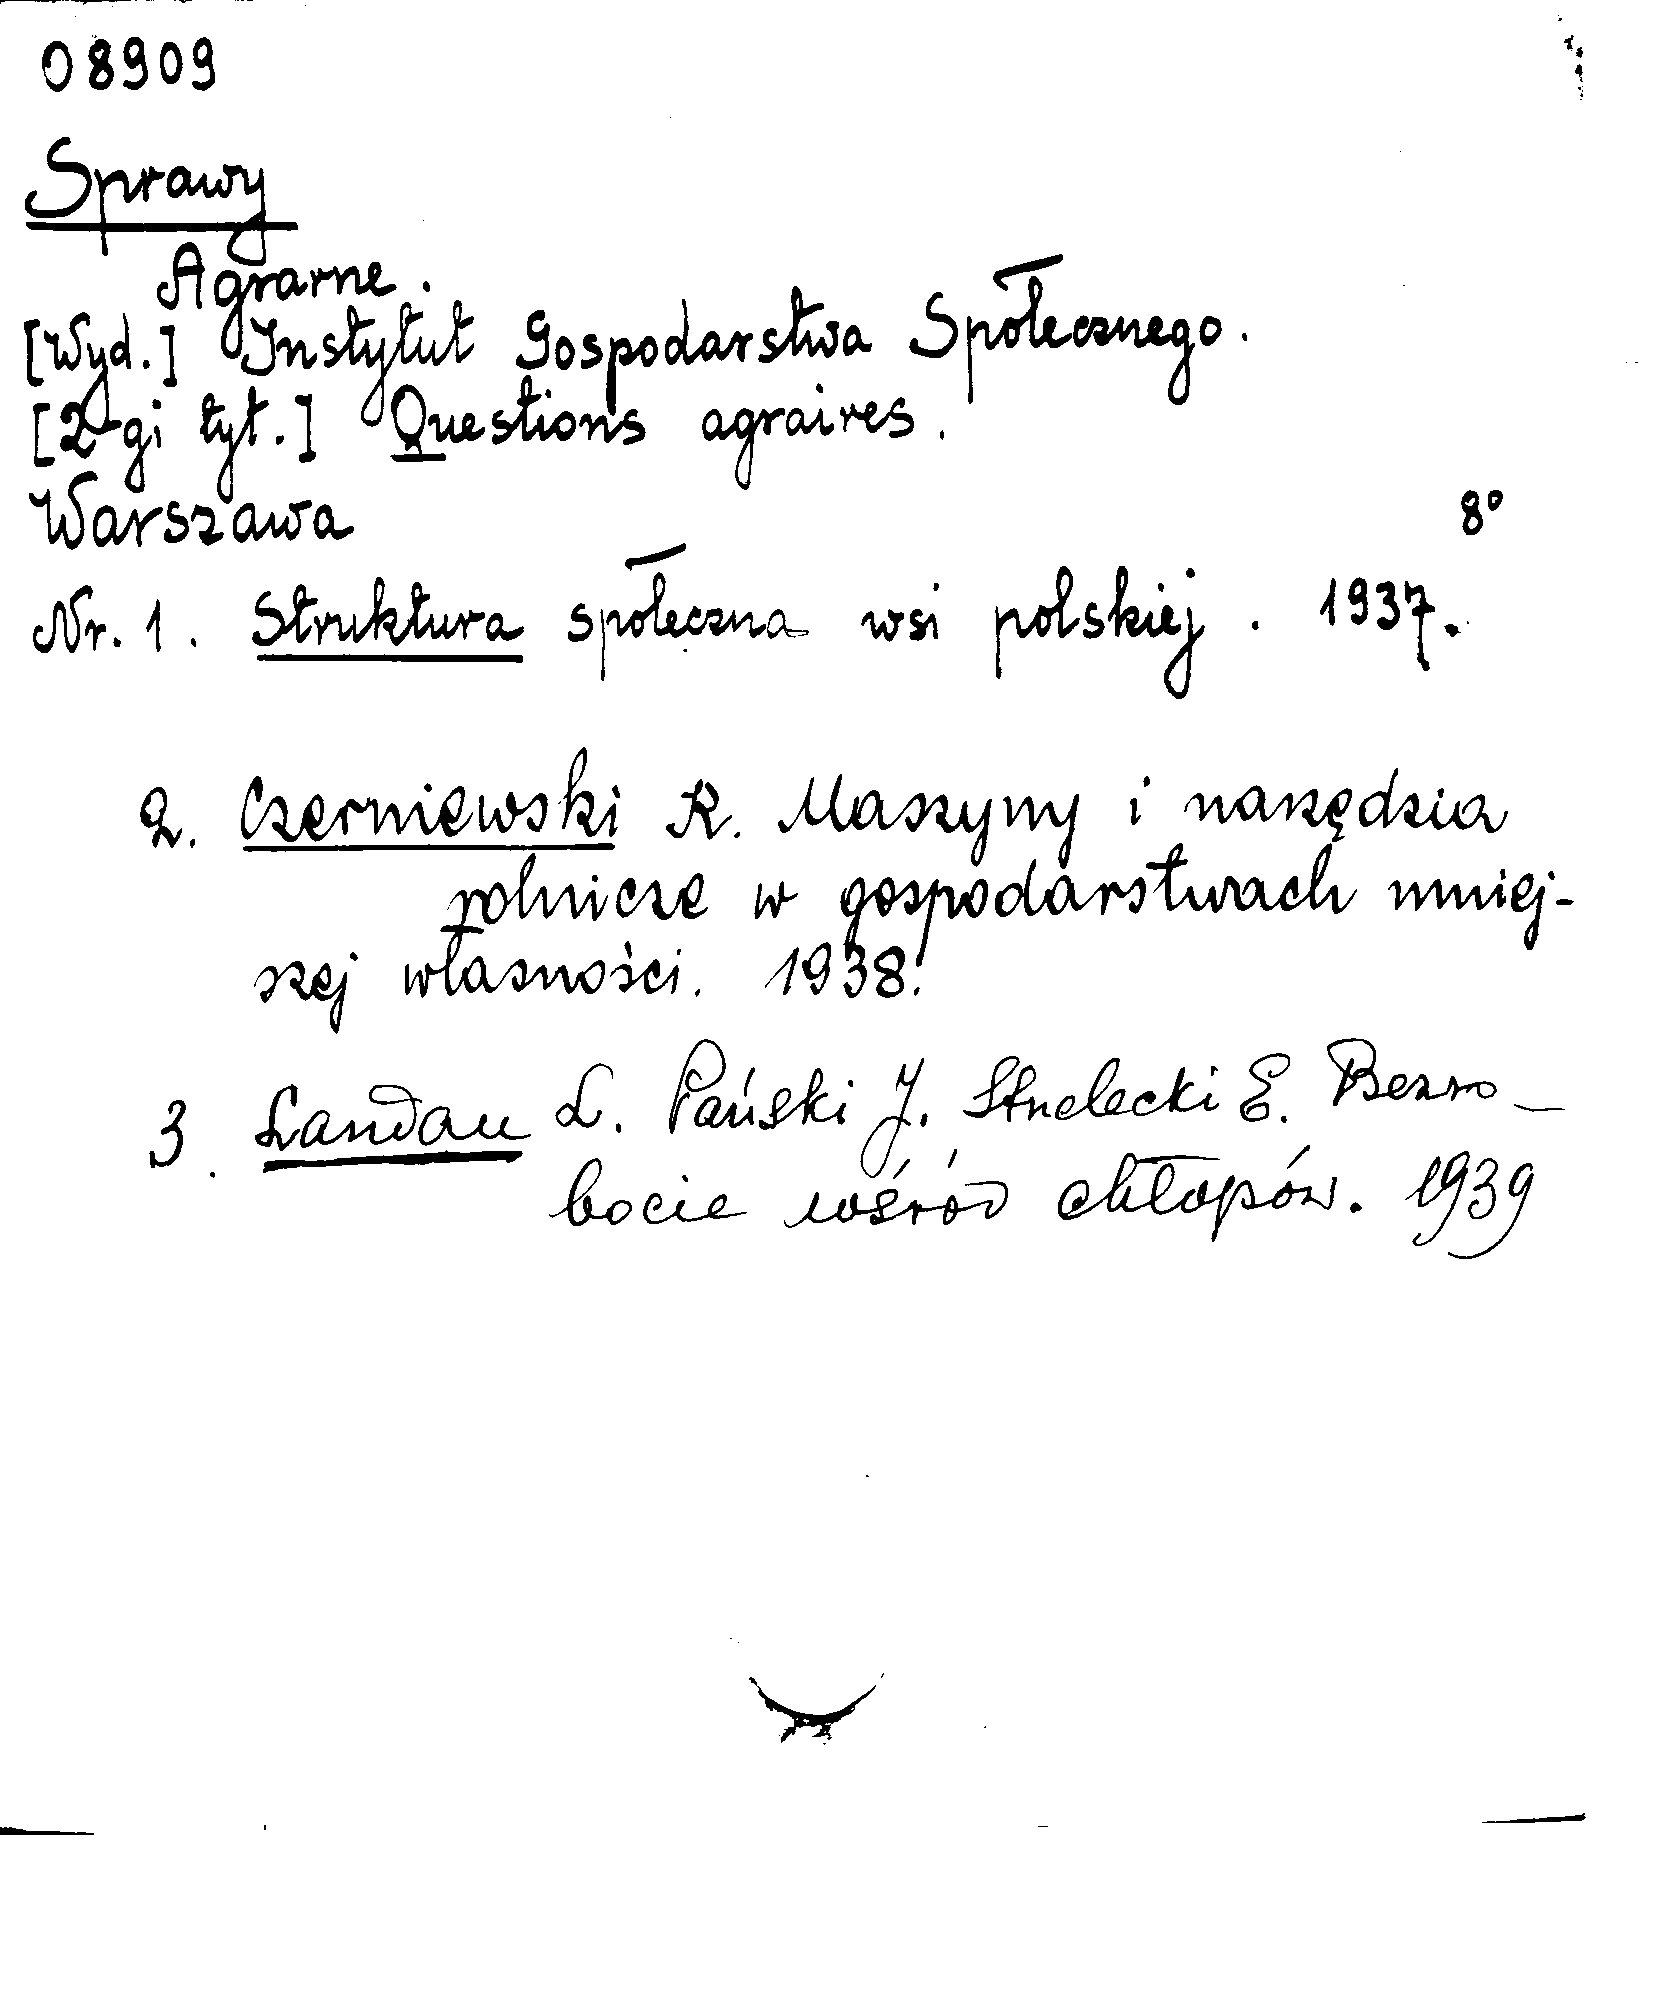 08909
Sprawy
Agrarne.
[Wyd.] Instytut Gospodarstwa Społecznego.
[2-gi tyt.] Questions agraires.
Warszawa 8°
Nr. 1. Struktura społeczna wsi polskiej. 1937.
2. Czerniewski R. Maszyny i narzędzia
rolnicze w gospodarstwach mniej-
szej własności. 1938.
3. Landau L. Pański J. Strzelecki E. Bezro-
bocie wśród chłopów. 1939